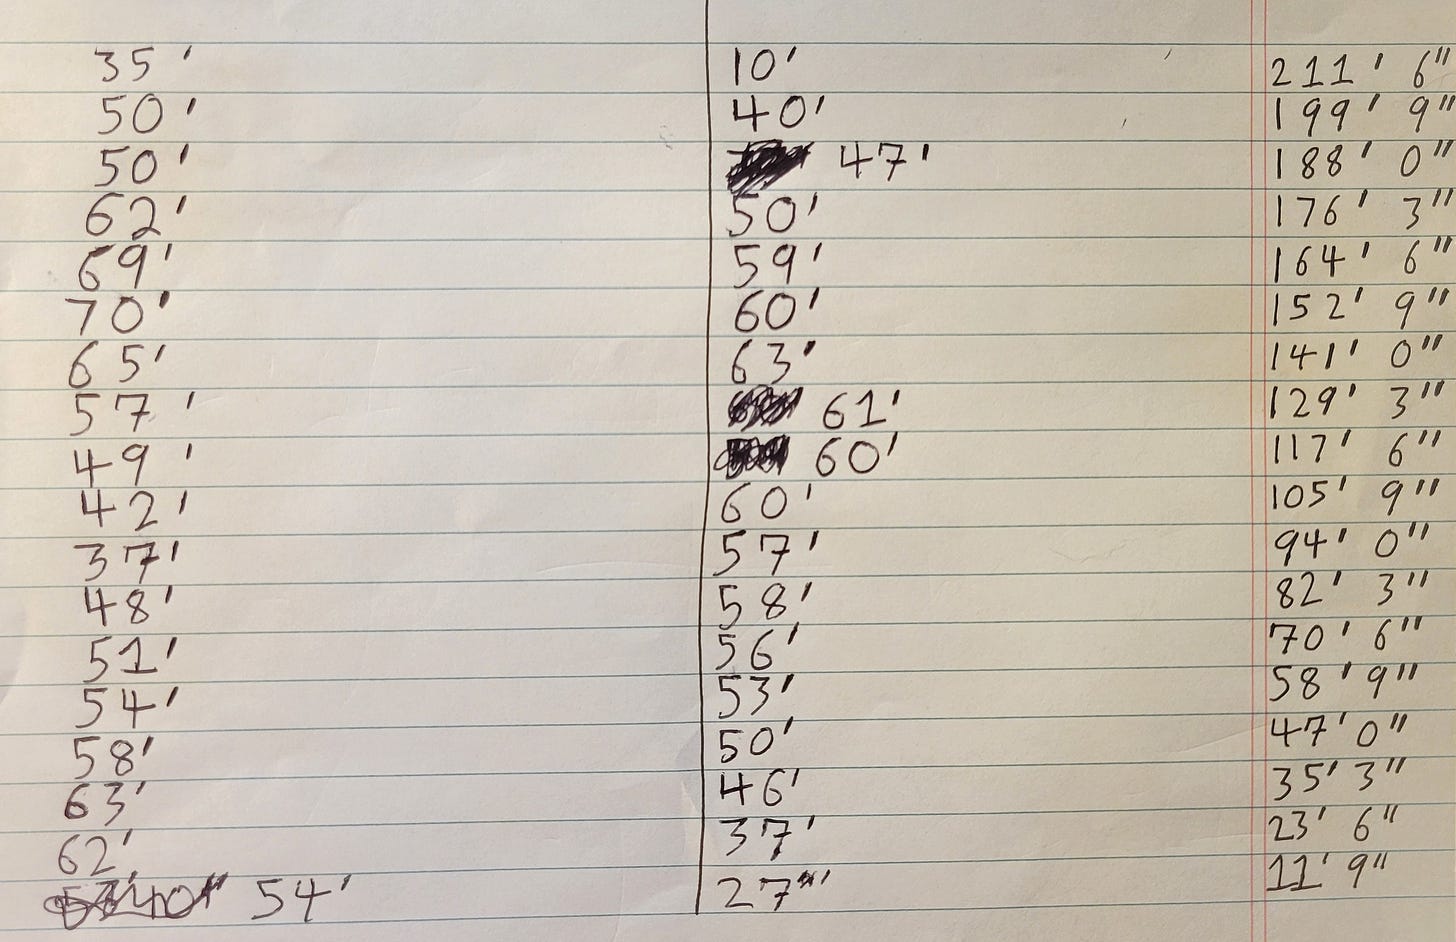 35' 10' 211' 6"
50' 40' 199' 9"
50' 47' 188' 0"
62' 50' 176' 3"
69' 59' 164' 6"
70' 60' 152' 9"
65' 63' 141' 0"
57' 61' 129' 3"
49' 60' 117' 6"
42' 60' 105' 9"
37' 57' 94' 0"
48' 58' 82' 3"
51' 56' 70' 6"
54' 53' 58' 9"
58' 50' 47' 0"
63' 46' 35' 3"
62' 37' 23' 6"
54' 27' 11' 9"